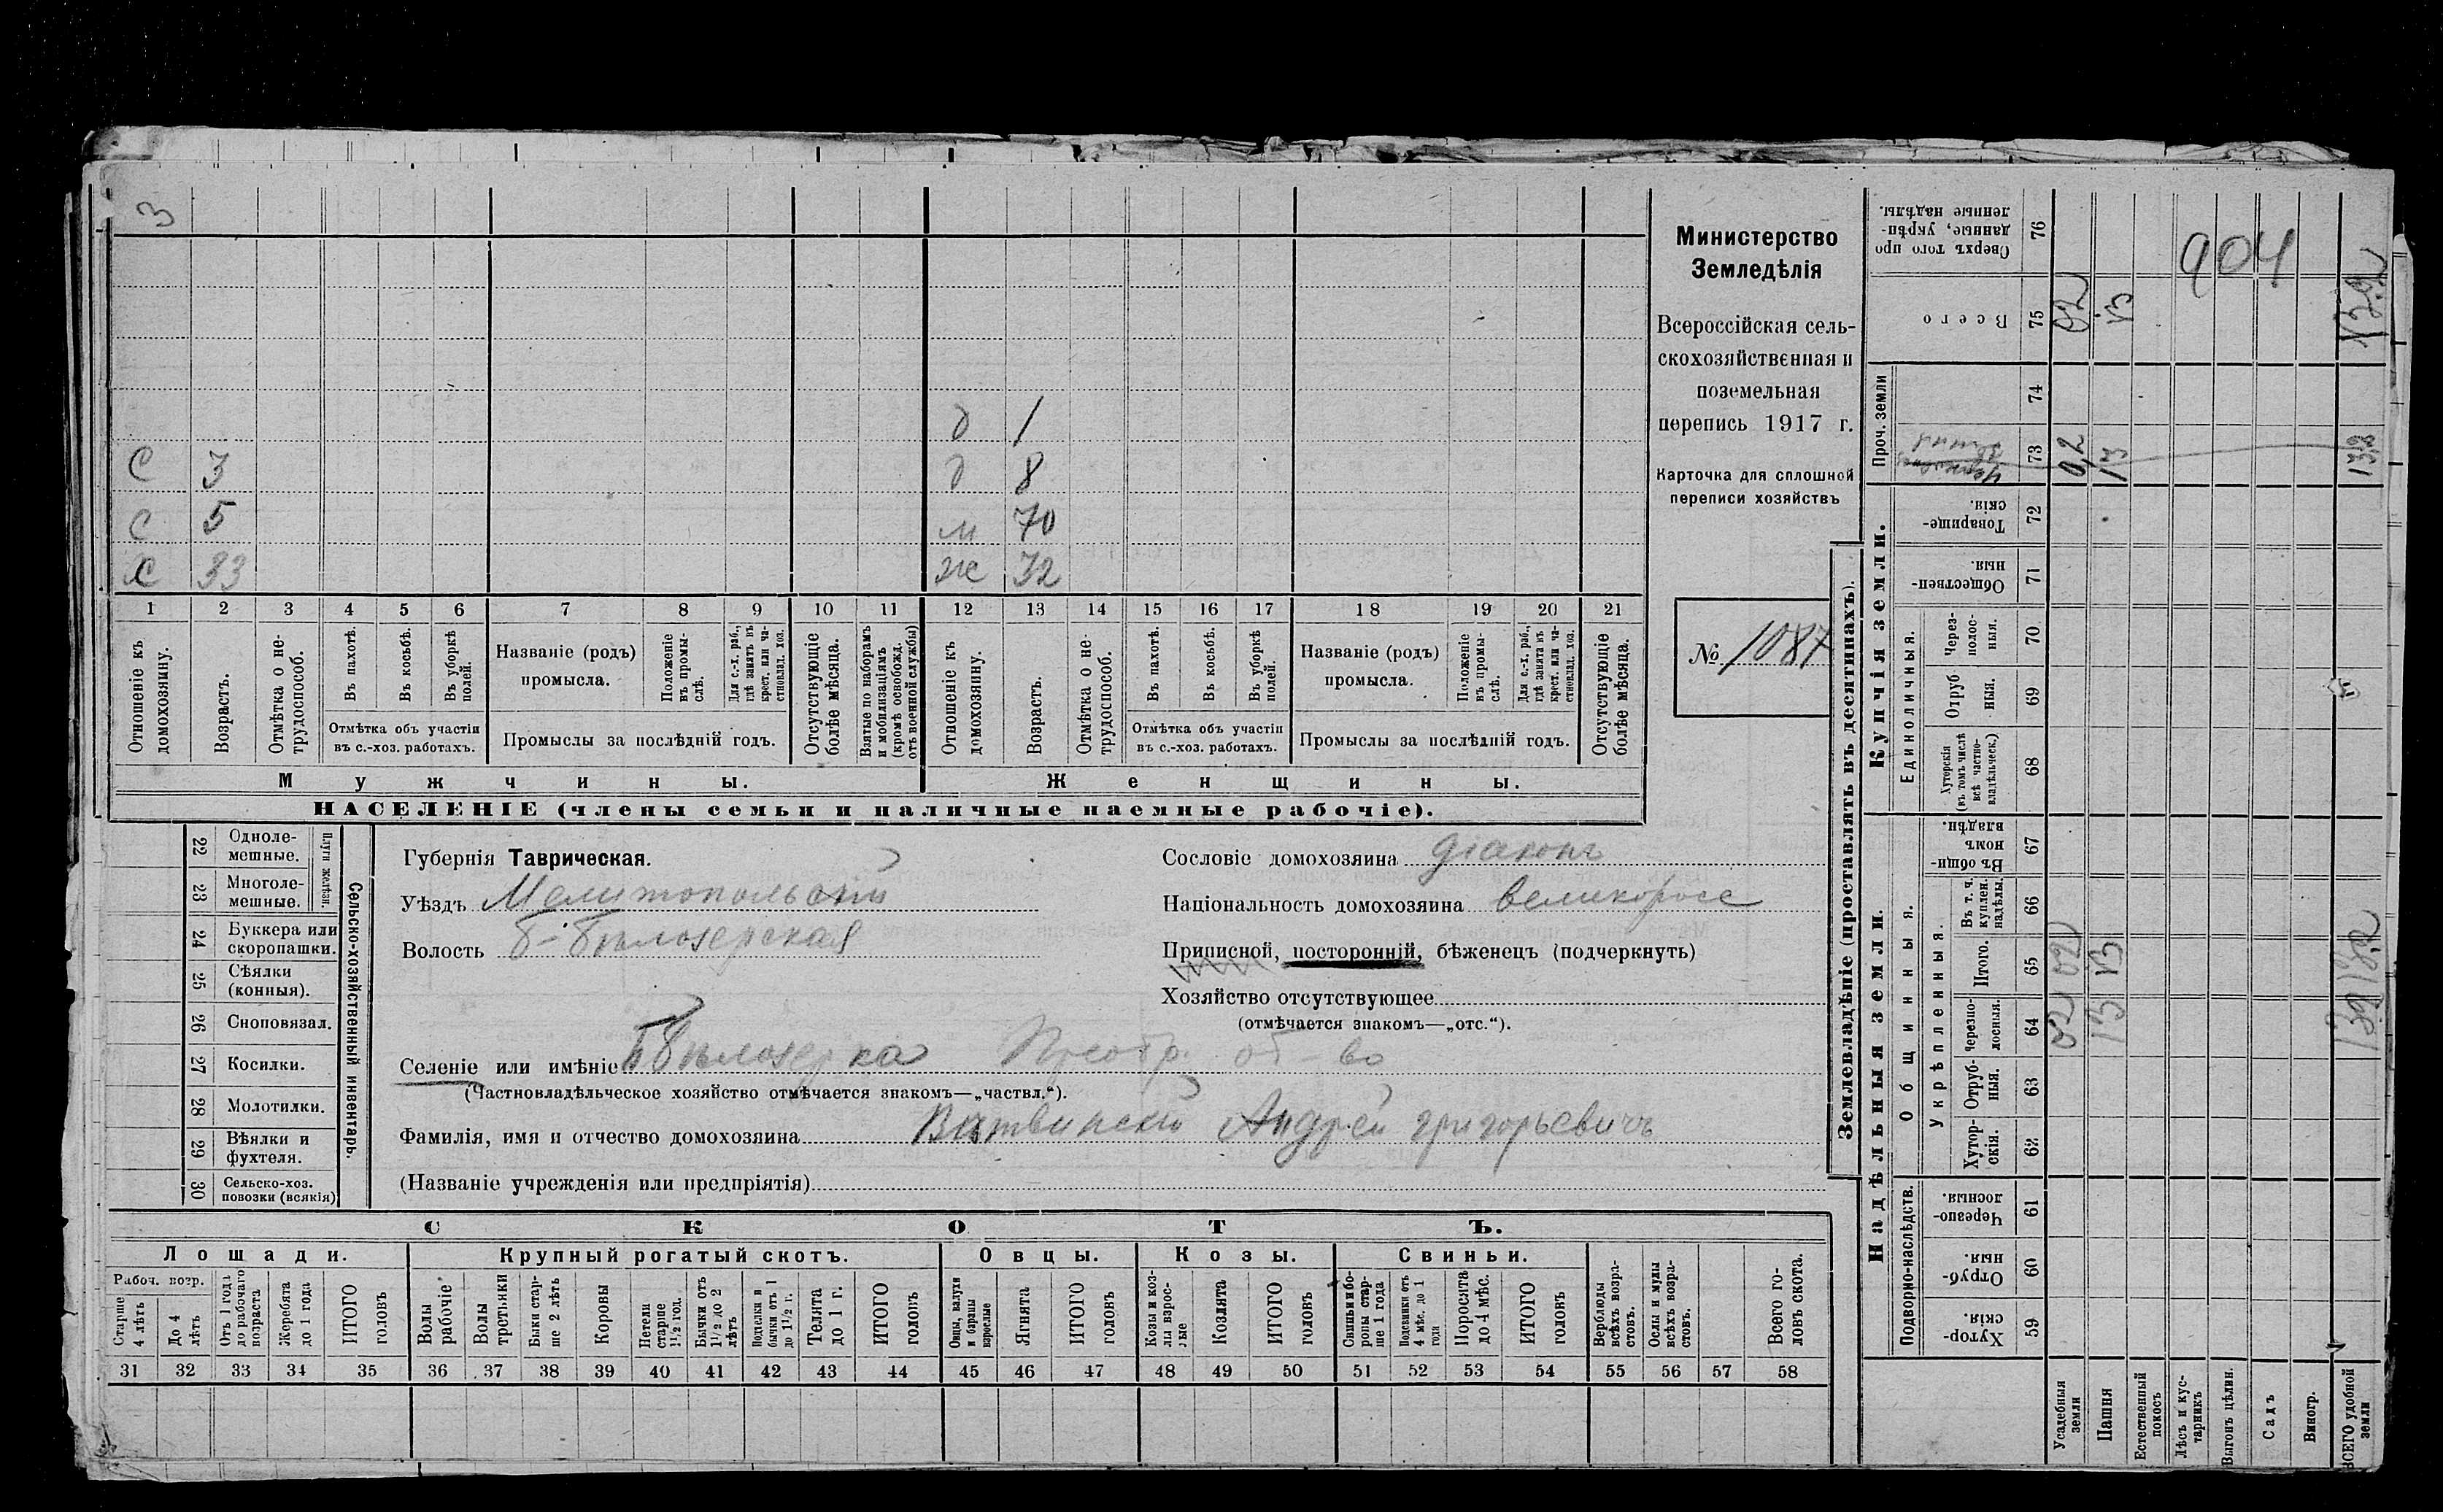 3
д 1
С 3 д 8
С 5 м 70
Х 33 ж 32
1 2 3 4 5 6 7 8 9 10 11 12 13 14 15 16 17 18 19 20 21
Отношеніе къ домохозяину.
Возрастъ.
Отмѣтка о нетрудоспособ.
Въ пахотѣ.
Въ косьбѣ.
Въ уборкѣ полей.
Отмѣтка объ участіи
въ с.-хоз. работахъ.
Названіе (родъ)
промысла.
Положеніе въ промыслѣ.
Для с.-х. раб., гдѣ занятъ въ крест. или частновлад. хоз.
Промыслы за послѣдній годъ.
Отсутствующіе болѣе мѣсяца.
Взятые по наборамъ и мобилизаціямъ (кромѣ освобожд. отъ военной службы)
Отношеніе къ домохозяину.
Возрастъ.
Отмѣтка о нетрудоспособ.
Въ пахотѣ.
Въ косьбѣ.
Въ уборкѣ полей.
Отмѣтка объ участіи
въ с.-хоз. работахъ.
Названіе (родъ)
промысла.
Положеніе въ промыслѣ.
Для с.-х. раб., гдѣ занята въ крест. или частновлад. хоз.
Промыслы за послѣдній годъ.
Отсутствующіе болѣе мѣсяца.
Мужчины. Женщины.
НАСЕЛЕНІЕ (члены семьи и наличные наемные рабочіе).
Министерство
Земледѣлія
Всероссійская сель-
скохозяйственная и
поземельная
перепись 1917 г.
Карточка для сплошной
переписи хозяйствъ
№ 1087
22 Одноле-
мешные.
23 Многоле-
мешные.
Плуги желѣзн.
24 Буккера или
скоропашки.
25 Сѣялки
(конныя).
26 Сноповязал.
27 Косилки.
28 Молотилки.
29 Вѣялки и
фухтеля.
30 Сельско-хоз.
повозки (всякія)
Сельско-хозяйственный инвентарь.
Губернія Таврическая.
Уѣздъ Мелитопольскій
Волость Б-Бѣлозерская
Сословіе домохозяина діаконъ
Національность домохозяина великоросс
Приписной, посторонній, бѣженецъ (подчеркнуть)
Хозяйство отсутствующее
(отмѣчается знакомъ—„отс.“).
Селеніе или имѣніе Б Бѣлозерка об-во
(Частновладѣльческое хозяйство отмѣчается знакомъ—„частвл.“).
Фамилія, имя и отчество домохозяина Андрей Григорьевичъ
(Названіе учрежденія или предпріятія)
СКОТЪ.
Лошади. Крупный рогатый скотъ. Овцы. Козы. Свиньи.
Рабоч. возр.
Старше 4 лѣтъ
До 4 лѣтъ
Отъ 1 года до рабочаго возраста
Жеребята до 1 года
ИТОГО головъ
Волы рабочіе
Волы третьяки
Быки старше 2 лѣтъ
Коровы
Нетели старше 1 1/2 год.
Бычки отъ 1 1/2 до 2 лѣтъ
Подтелки и бычки отъ 1 до 1 1/2 г.
Телята до 1 г.
ИТОГО головъ
Овцы, валухи и бараны взрослые
Ягнята
ИТОГО головъ
Козы и козлы взрослые
Козлята
ИТОГО головъ
Свиньи и боровы старше 1 года
Подсвинки отъ 4 мѣс. до 1 года
Поросята до 4 мѣс.
ИТОГО головъ
Верблюды всѣхъ возрастовъ.
Ослы и мулы всѣхъ возрастовъ.
Всего головъ скота.
31 32 33 34 35 36 37 38 39 40 41 42 43 44 45 46 47 48 49 50 51 52 53 54 55 56 57 58
Землевладѣніе (проставлять въ десятинахъ).
Надѣльныя земли.
Купчія земли.
Проч. земли
Подворно-наслѣдств.
Общинныя.
Укрѣпленныя.
Единоличныя.
Сверхъ того проданные, укрѣпленные надѣлы. 76
904
Всего 75 02 13 13,2
74
73 0,2 13 13,2
Товарищескія. 72
Общественныя. 71
Черезполосныя. 70
Отрубныя. 69
Хуторскія (въ томъ числѣ всѣ частновладѣльческ.) 68
Въ общинномъ владѣн. 67
Въ т. ч. куплен. надѣлы. 66
Итого. 65 02 13
Черезполосныя. 64 02 13
Отрубныя. 63
Хуторскія. 62
Черезполосныя. 61
Отрубныя. 60
Хуторскія. 59
Усадебныя земли
Пашня
Естественный покосъ
Лѣсъ и кустарникъ
Выгонъ цѣлин.
Садъ
Виногр.
ВСЕГО удобной земли